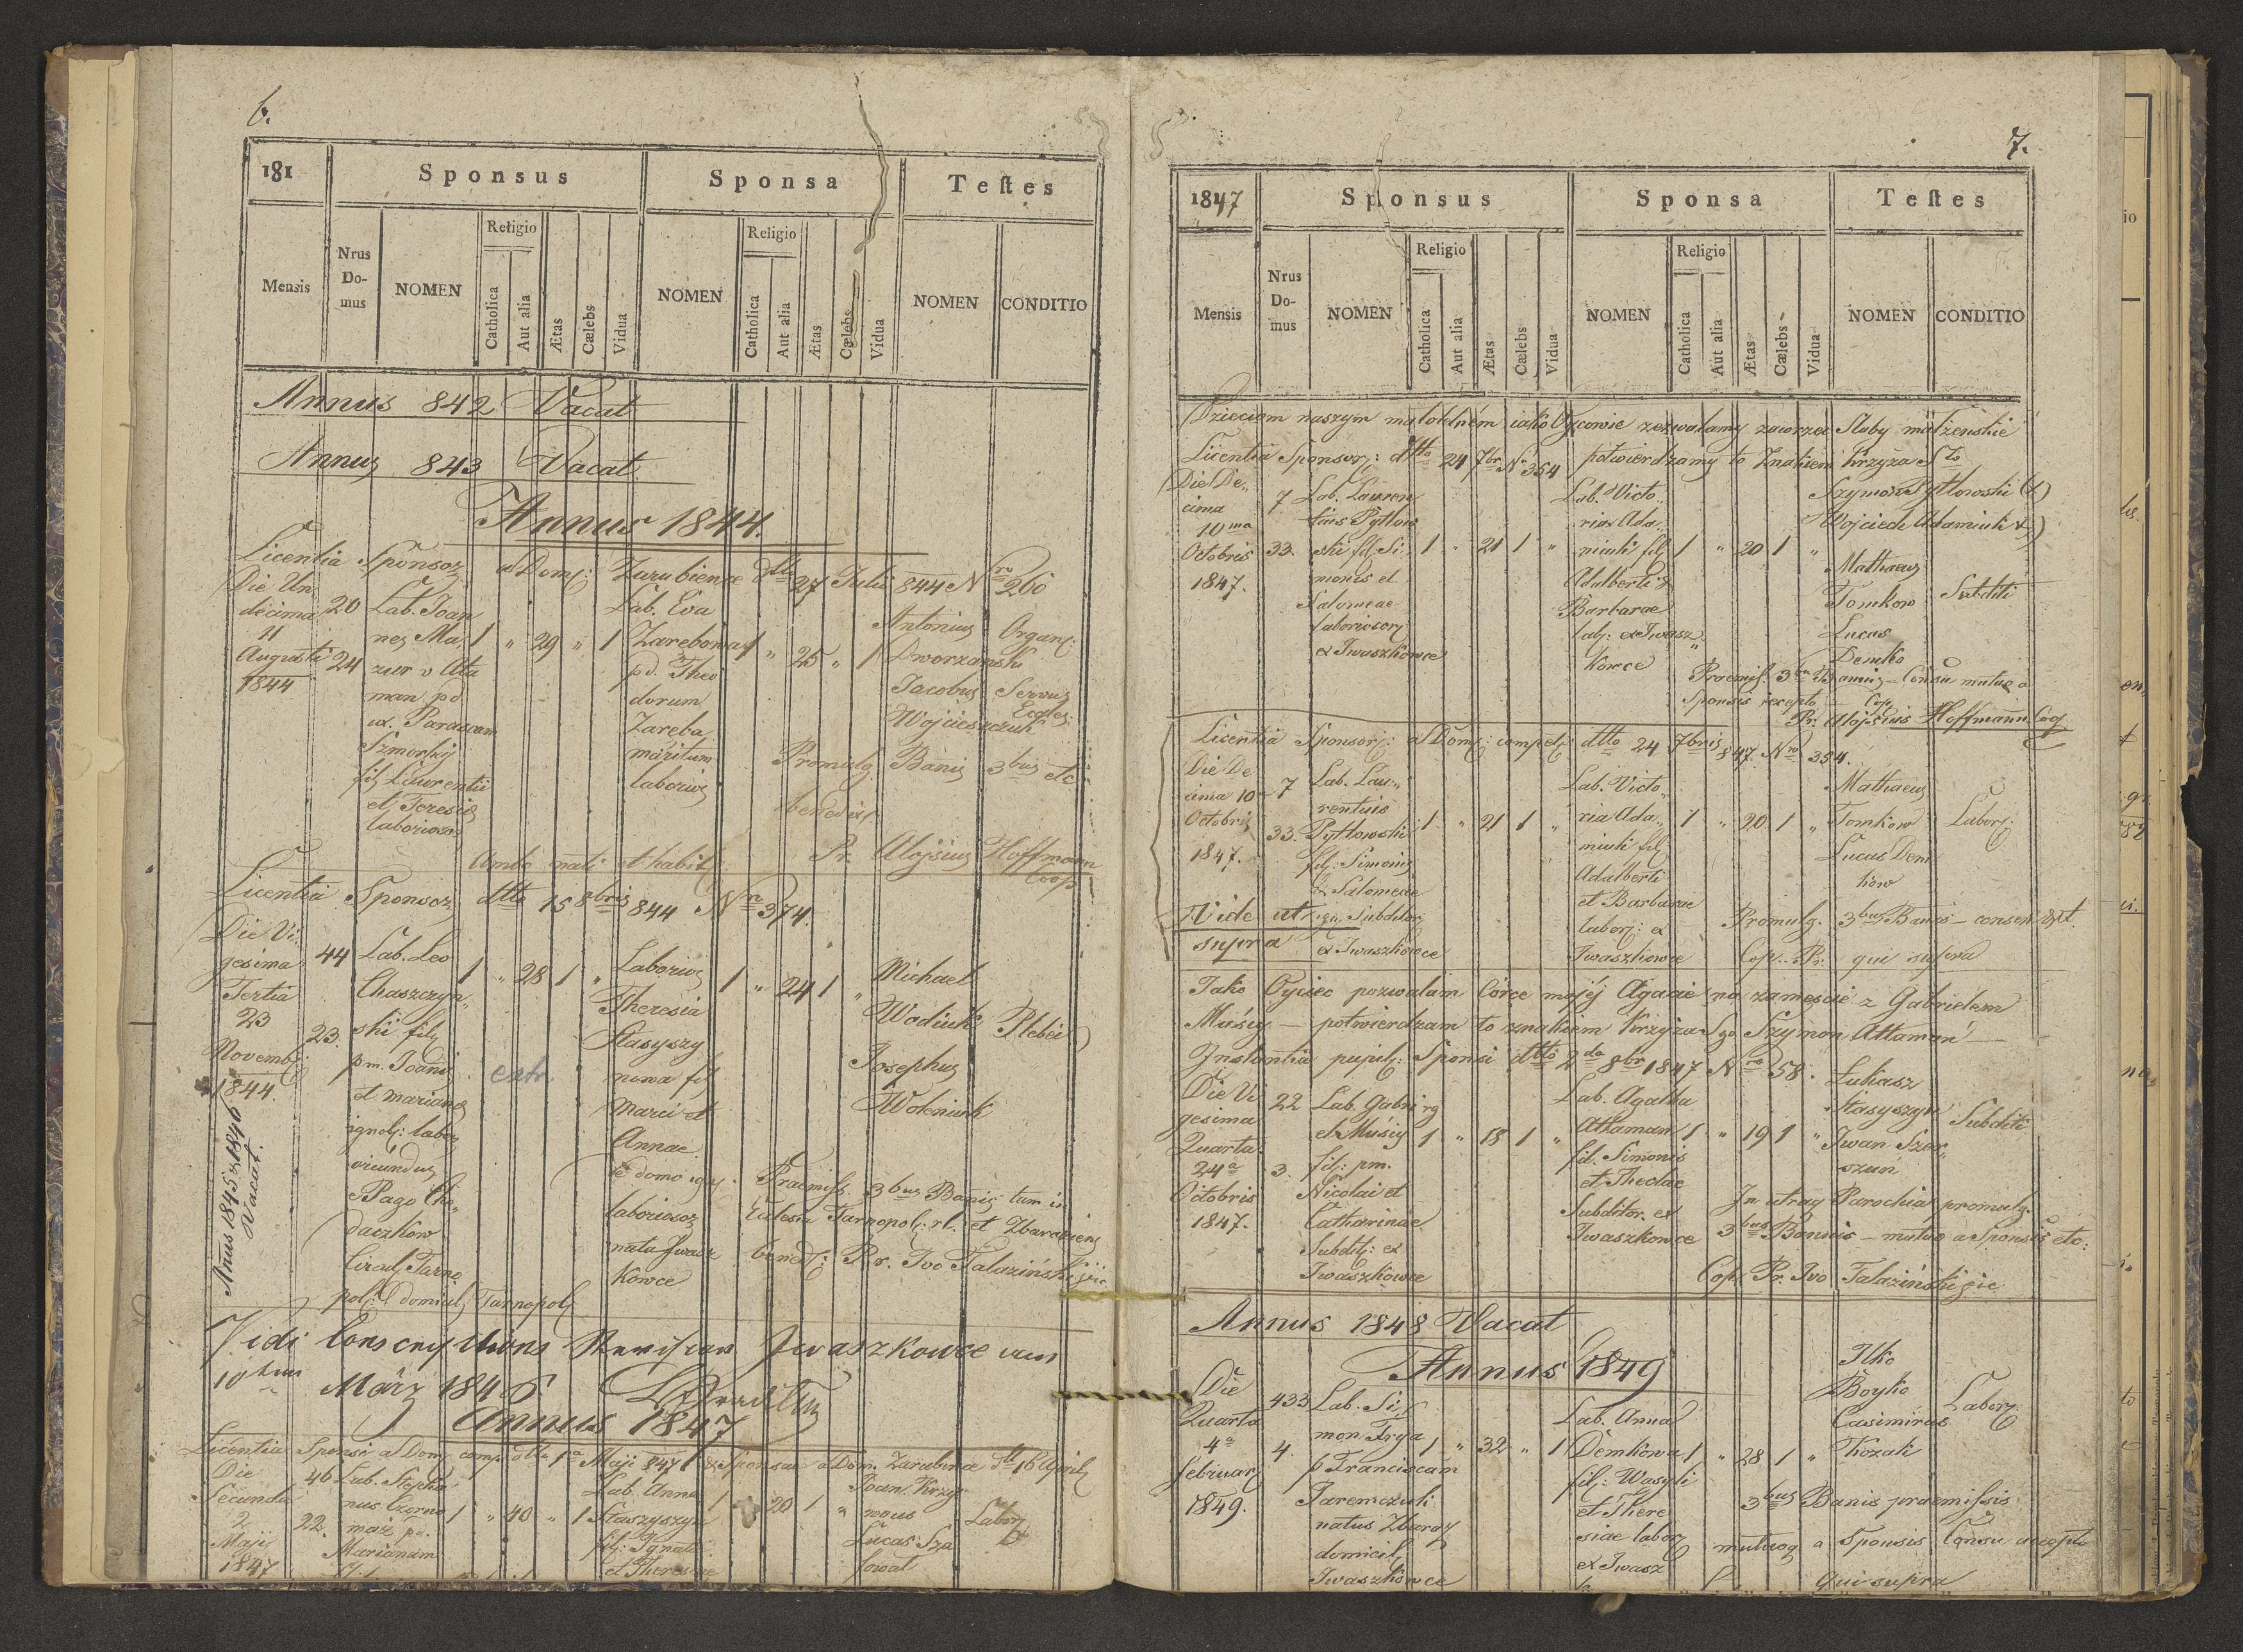 6.
181
Sponsus
Sponsa
Teſtes
Mensis
Nrus Do- mus
NOMEN
Religio
Catholica
Aut alia
Ætas
Cælebs
Vidua
NOMEN
Religio
Catholica
Aut alia
Ætas
Cælebs
Vidua
NOMEN
CONDITIO
Annus 842 Vacat
Annus 843 Vacat
Annus 1844.
Licentia Sponsor a Dom: Zarubience dtto 27 Julii 844 Nro 260
Die Un
decima
11
Augusti
1844
20
24
Lab. Joan
nes Ma
zur v Ata
man pd
ux. Parascam
Szmorhij
fil Laurentii
et Teresiae
laborioso
1 " 29 " 1
Lab. Eva
Zarebowa
pd. Theo
dorum
Zaręba
maritum
laborios
1 " 25 " 1
Antonius
Dworzański
Jacobus
Wojcieszczuk
Organ:
Servus
Eccles:
Promulg. Banis 3bus etc
benedix
Ambo nati et habit
Pr. Alojsius Hoffmann
Coop
Licentia Sponsor dtto 15 8bris 844 Nro 374.
Die Vi
gesima
Tertia
23
Novemb
1844.
44
23.
Lab. Leo
Chaszczyń
ski fil
pm. Joanis
et Marianae
ignob: labor
oriundus
e Pago Cho
daczkow
Circul Tarno
pol: domicil Tarnopol
1 " 28 1 "
extr.
Laborios
Theresia
Stasyszy
nowa fil
Marci et
Annae
e domo
laboriosor
nata Iwasz
kowce
1 " 24 1 "
Michael
Wodiuk
Josephus
Woleniuk
Plebei
Praemiss 3bus Banis tam in
Eccles Tarnopol: r.l. et Zbaraziens
bened: Pr. Ivo Talaziński
Annus 1845 & 1846
Vacat.
Vidi Conscriptions Revision Iwaszkowce am
10ten März 1846
Annus 1847
Licentia Sponsi a Dom comp dtto 1a Maji 847 & Sponsae a Dom. Zarubince dtto 16 April
Die
Secunda
2
Maji
1847
46
22.
Lab. Stepha
nus Czorno
maz pd.
Mariannam
1 " 40 " 1
Lab. Anna
Staszyszyn
fil: Ignatii
et Theresiae
1 " 20 1 "
Joan. Krzy
wous
Lucas Sza
fowal
Labor
7.
1847
Sponsus
Sponsa
Teſtes
Mensis
Nrus Do- mus
NOMEN
Religio
Catholica
Aut alia
Ætas
Cælebs
Vidua
NOMEN
Religio
Catholica
Aut alia
Ætas
Cælebs
Vidua
NOMEN
CONDITIO
Dzieciom naszym małoletnem iako Oycowie zezwalamy zawrzeć Sluby małżeńskie
Licentia Sponsor: dtto 24 7br Nr 354 potwierdzamy to Znakiem Krzyża Sto
Szymon Pytlowski (+)
Wojciech Adamiuk +)
Die De
cima
10ma
Octobris
1847.
7
33.
Lab. Lauren
tius Pytlow
ski fil: Si
monis et
Salomeae
laboriosor
ex Iwaszkowce
1 " 21 1 "
Lab. Victo
ria Ada
miuk fil
Adalberti &
Barbarae
lab: ex Iwasz
kowce
1 " 20 1 "
Mathaeus
Tomkow
Lucas
Demko
Subditi
Praemis: 3bus Bannis – Consensu mutuo a
Sponsis recepto Cop.
Pr. Alojsius Hoffmann Coop
Licentia Sponsor: a Dom: compet: dtto 24 7bris 847. Nro 354.
Die De
cima 10
Octobris
1847.
Vide ut
supra
7
33.
Lab. Lau
rentius
Pytlowski
fil: Simonis
& Salomeae
Subditor
ex Iwaszkowce
1 " 21 1 "
Lab. Victo
ria Ada
miuk fil
Adalberti
et Barbarae
labor: ex
Iwaszkowce
1 " 20 1 "
Mathaeus
Tomkow
Lucas Dem
kow
Labor:
Promulg. 3bus Banis – consen.
Cop. Pr. qui supra
Jako Oyciec pozwalam Córce mojéj Agacie na zamęscie z Gabrielem
Musiy – potwierdzam to znakiem Krzyża Sgo Szymon Attaman
Instantia pupil: Sponsi dtto 2do 8br 1847 Nro 58.
Die Vi
gesima
Quarta
24a
Octobris
1847.
22
3.
Lab. Gabri
el Musiy
fil: pm.
Nicolai et
Catharinae
Subdit: ex
Iwaszkowce
1 " 18 1 "
Lab. Agatha
Attaman
fil. Simonis
et Theclae
Subditor. ex
Iwaszkowce
1 " 19 1 "
Łukasz
Stasyszyn
Iwan Szer
szun
Subditi
In utraq Parochia promulg.
3bus Bannis – mutuo a Sponsis etc:
Cop. Pr. Ivo Talaziński
Annus 1848 Vacat
Annus 1849
Die
Quarta
4a
Februar
1849.
433
4.
Lab. Si
mon Fryga
p Franciscam
Jaremczuk
natus Zbaraz
domicil
Iwaszkowce
1 " 32 " 1
Lab. Anna
Demkowa
fil: Wasyli
et There
siae labor
ex Iwasz
1 " 28 1 "
Ilko
Boyko
Casimirus
Kozak
Labor:
3bus Banis praemissis
mutuoq a Sponsis Consensu accepto
qui supra